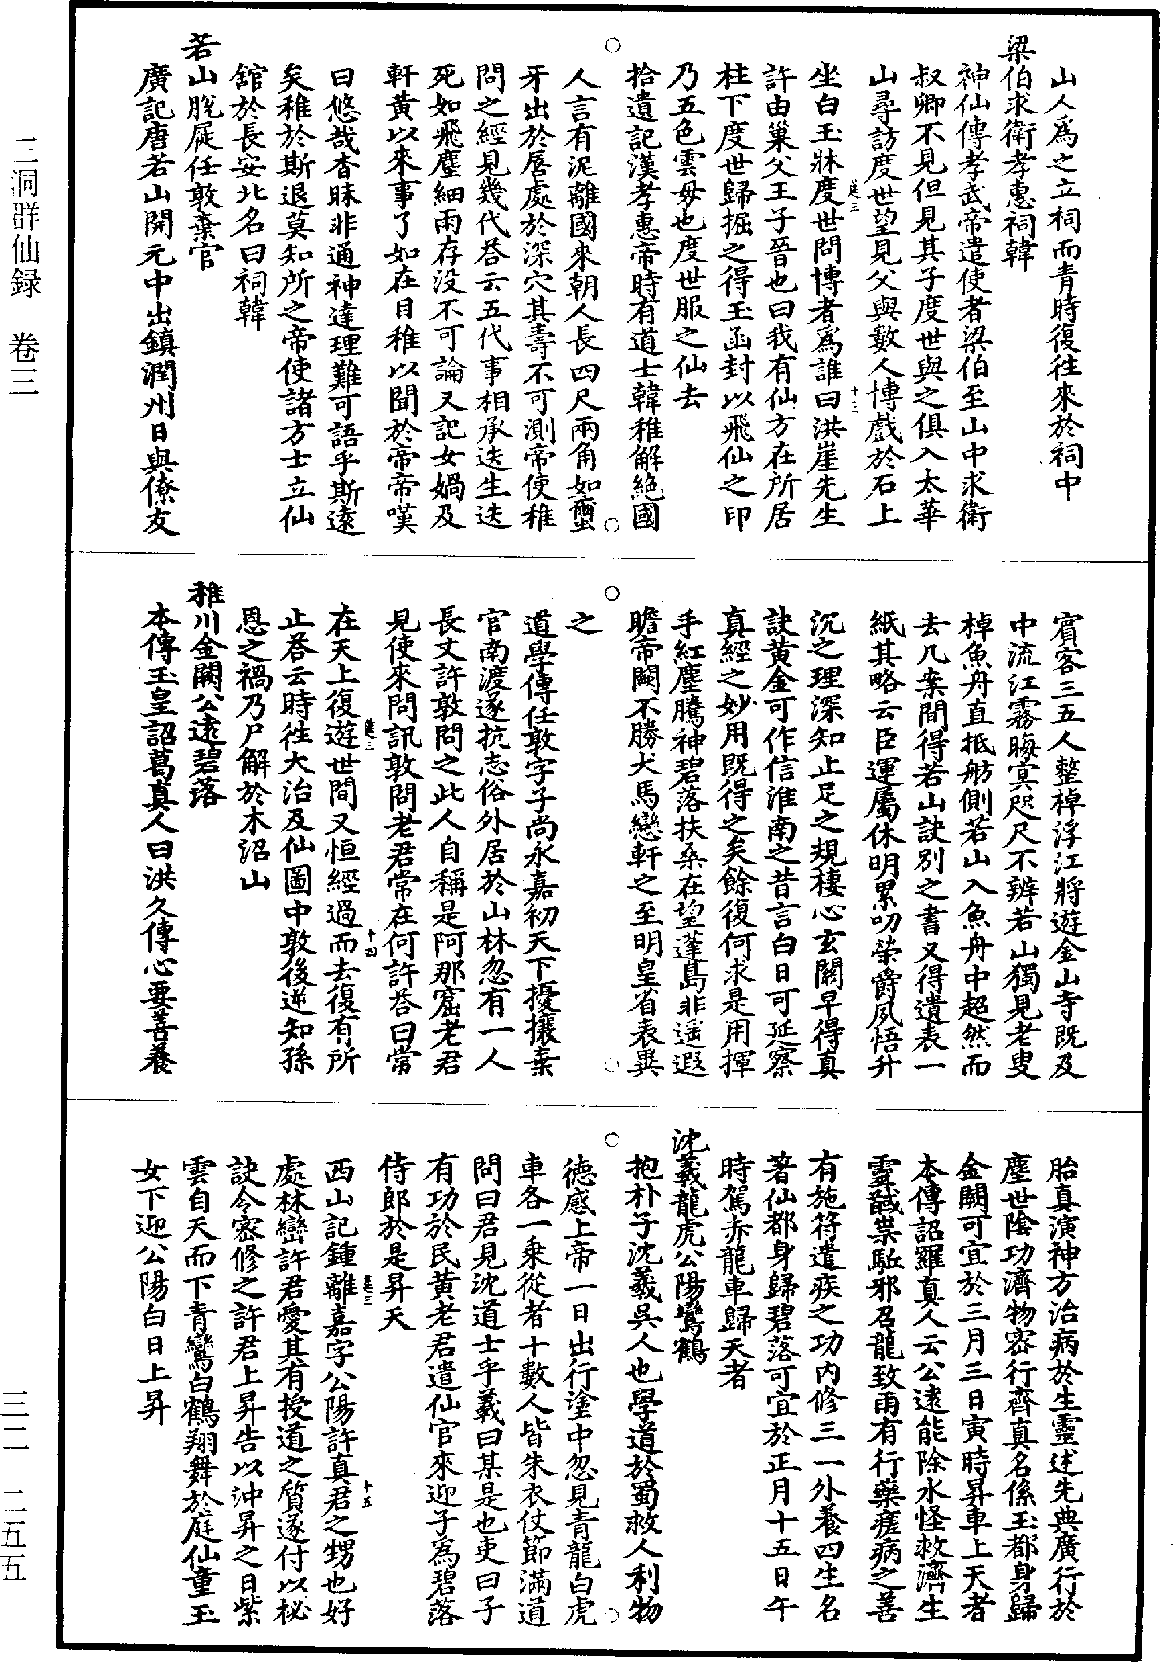 山人爲之立祠而青時復往來於祠中
梁伯求衛孝惠祠韓
神仙傳孝武帝遣使者梁伯至山中求衛
叔卿不見但見其子度世與之俱入太華
山尋訪度世望見父與數人博戲於石上
坐白玉牀度世問博者爲誰曰洪崖先生
許由巢父王子晉也曰我有仙方在所居
柱下度世歸掘之得玉函封以飛仙之印
乃五色雲母也度世服之仙去
拾遺記漢孝惠帝時有道士韓稚解絕國
人言有泥離國來朝人長四尺兩角如蠒
牙出於唇處於深穴其壽不可測帝使稚
問之經見幾代荅云五代事相承迭生迭
死如飛塵細雨存没不可論又記女媧及
軒黃以來事了如在目稚以聞於帝帝嘆
曰悠哉杳昧非通神達理難可語乎斯遠
矣稚於斯退莫知所之帝使諸方士立仙
舘於長安北名曰祠韓
若山脫屣任敦棄官
廣記唐若山開元中出鎮潤州日與僚友
賓客三五人整棹浮江將遊金山寺既及
中流江霧晦㝠咫尺不辨若山獨見老叟
棹魚舟直抵舫側若山入魚舟中超然而
去几案間得若山訣別之書又得遺表一
紙其略云臣運屬休明累叨榮爵夙悟升
沉之理深知止足之規棲心玄關早得真
訣黄金可作信淮南之昔言白日可延察
真經之妙用既得之矣餘復何求是用揮
手紅塵騰神碧落扶桑在望蓬島非遥遐
瞻帝闕不勝犬馬戀軒之至明皇省表異
之
道學傳任敦字子尚永嘉初天下擾攘棄
官南渡遂抗志俗外居於山林忽有一人
長丈許敦問之此人自稱是阿那窟老君
見使來問訊敦問老君常在何許荅曰常
在天上復遊世間又恒經過而去復有所
止荅云時往大治及仙圖中敦後逆知孫
恩之禍乃尸解於木沼山
稚川金闕公遠碧落
本傳玉皇詔葛真人曰洪久傳心要善養
胎真演神方治病於生靈述先典廣行於
塵世陰功濟物密行齊真名係玉都身歸
金闕可宜於三月三日寅時昇車上天者
本傳詔羅真人云公遠能除水怪救濟生
靈馘祟駈邪召龍致雨有行藥瘥病之善
有施符遣疾之功内修三一外養四生名
著仙都身歸碧落可宜於正月十五日午
時駕赤龍車歸天者
沈羲龍虎公陽鸞鶴
抱朴子沈羲吳人也學道於蜀救人利物
德感上帝一日出行塗中忽見青龍白虎
車各一乗從者十數人皆朱衣仗節滿道
問曰君見沈道士乎羲曰某是也吏曰子
有功於民黄老君遣仙官來迎子爲碧落
侍郎於是昇天
西山記鍾離嘉字公陽許真君之甥也好
處林巒許君愛其有授道之質遂付以秘
訣令密修之許君上昇告以沖昇之日紫
雲自天而下青鸞白鶴翔舞於庭仙童玉
女下迎公陽白日上昇
三洞群仙録 卷三
三二 二五五